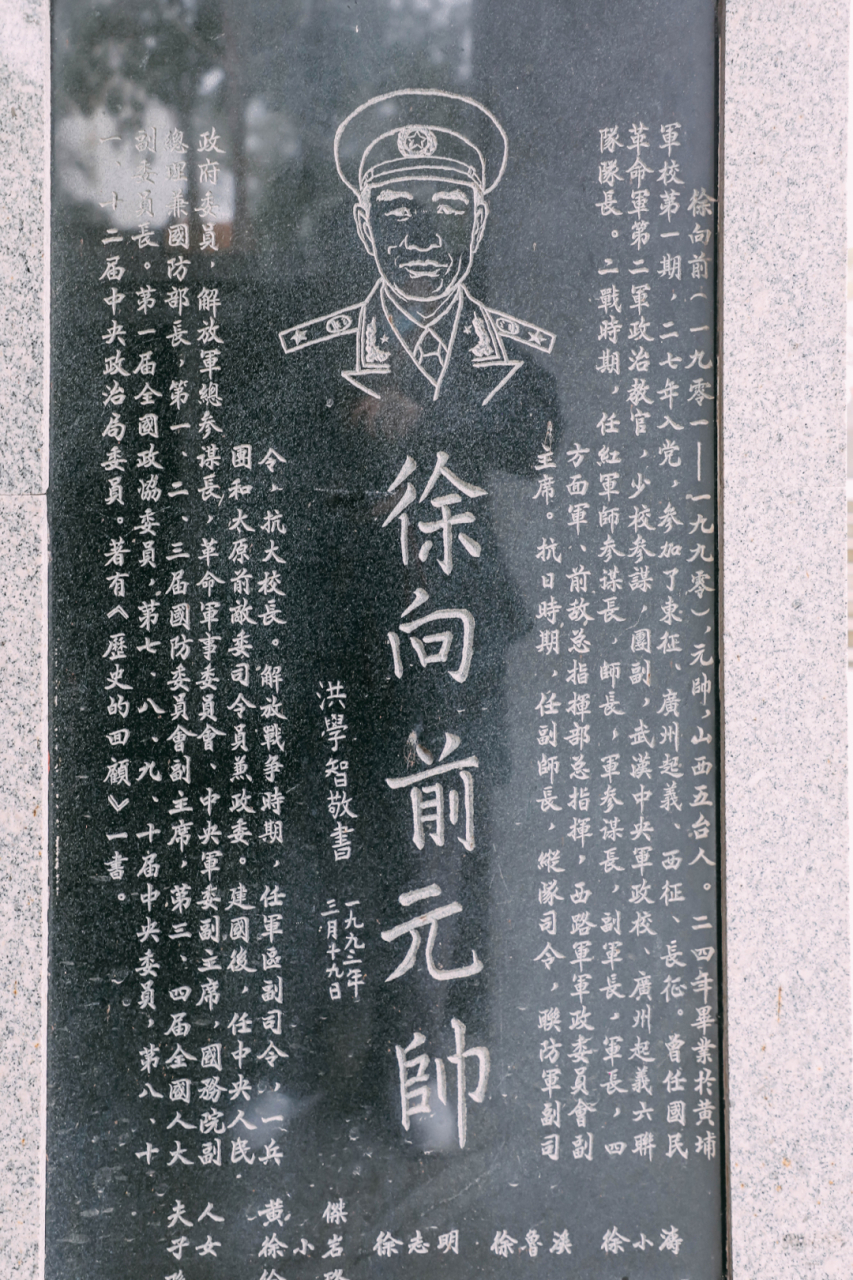 徐向前（一九零一——一九九零），元帥，山西五台人。二四年畢業於黄埔
軍校第一期，二七年入党，参加了東征、廣州起義、西征、長征。曾任國民
革命軍第二軍政治教官，少校参謀，團副，武漢中央軍政校、廣州起義六聯
隊隊長。二戰時期，任紅軍師参谋長，師長，軍参谋長，副軍長，軍長，四
方面軍、前敌总指揮部总指揮，西路軍軍政委員會副
主席。抗日時期，任副師長，縱隊司令，聯防軍副司
徐向前元帥
洪學智敬書
一九九三年
三月十九日
令，抗大校長。解放戰争時期，任軍區副司令，一兵
團和太原前敵委司令員兼政委。建國後，任中央人民
政府委員，解放軍總参谋長，革命軍事委員會、中央軍委副主席，國務院副
總理兼國防部長，第一、二、三届國防委員會副主席，第三、四届全國人大
副委員長。第一届全國政協委員，第七、八、九、十届中央委員，第八、十
一、十二届中央政治局委員。著有《歷史的回顧》一書。
徐小濤
徐魯溪
徐志明
傑岩
小
黄徐
人女
夫子